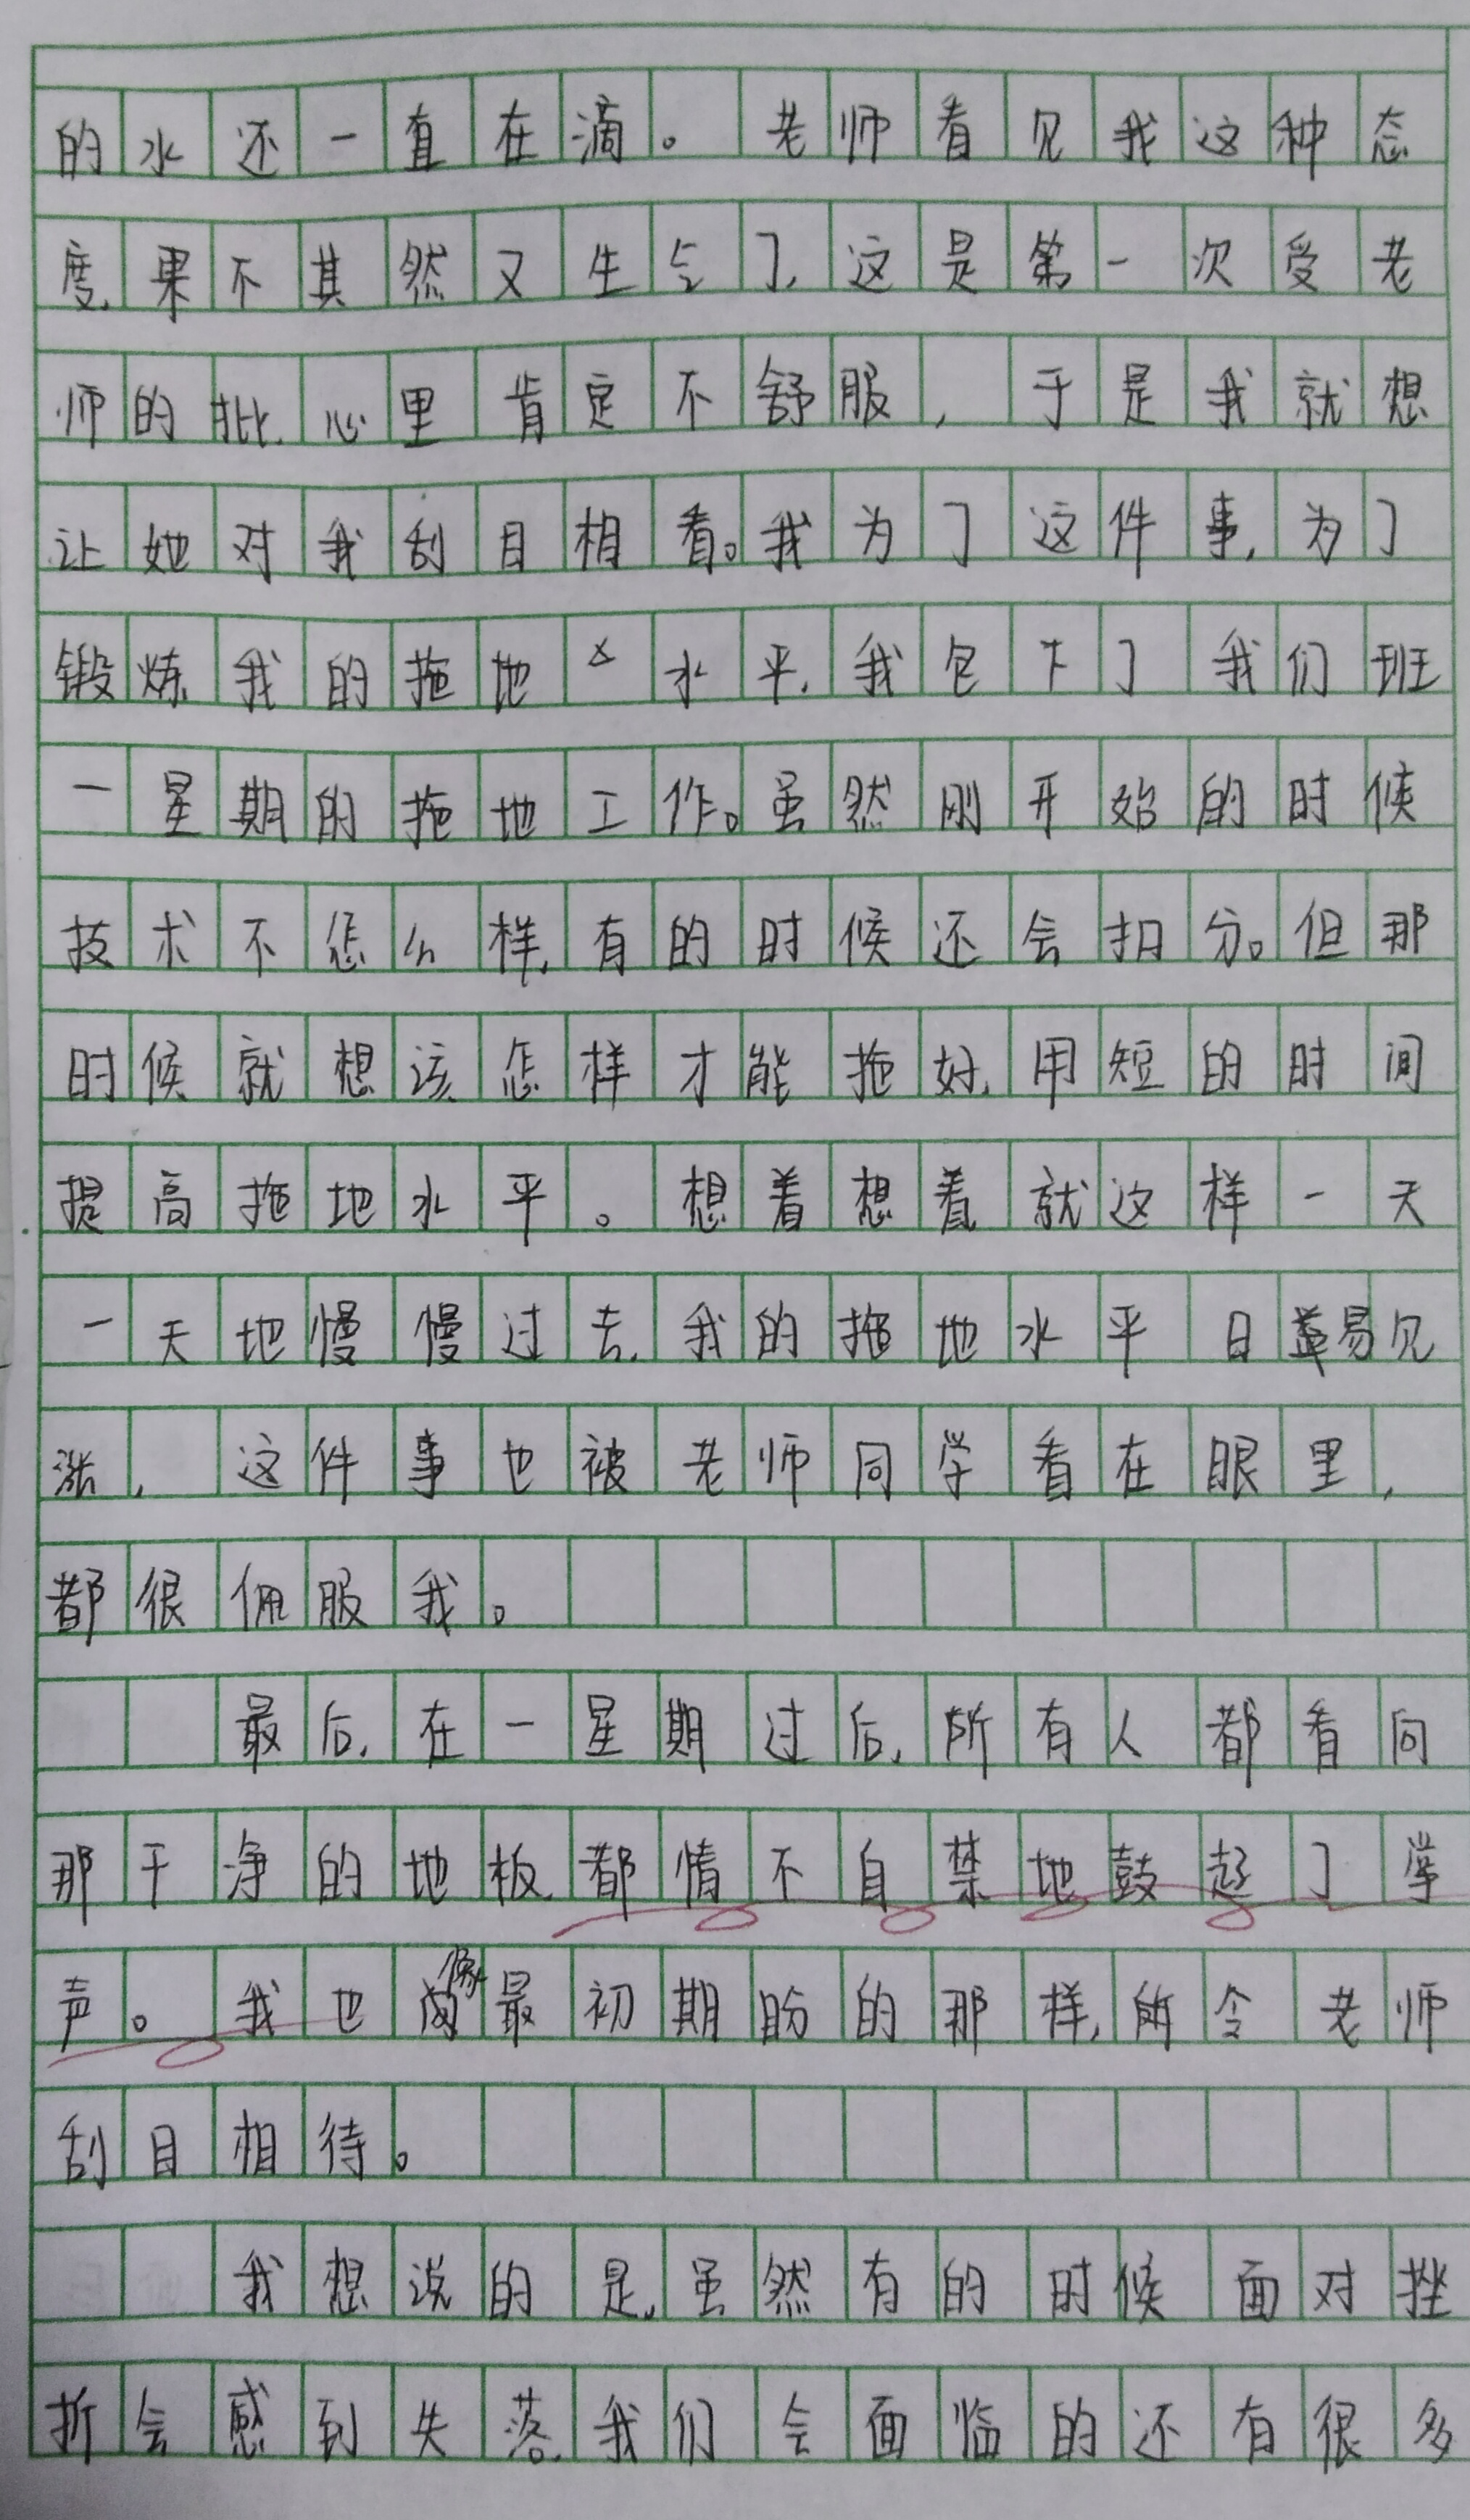 的水还一直在滴。老师看见我这种态
度,果不其然又生气了,这是第一次受老
师的批,心里肯定不舒服,于是我就想
让她对我刮目相看。我为了这件事,为了
锻炼我的拖地水平,我包下了我们班
一星期的拖地工作。虽然刚开始的时候
技术不怎么样,有的时候还会扣分。但那
时候就想该怎样才能拖好,用短的时间
提高拖地水平。想着想着,就这样一天
一天地慢慢过去,我的拖地水平日易见
涨,这件事也被老师同学看在眼里,
都很佩服我。
最后,在一星期过后,所有人都看向
那干净的地板,都情不自禁地鼓起了掌
声。我也像最初期盼的那样,令老师
刮目相待。
我想说的是,虽然有的时候面对挫
折会感到失落,我们会面临的还有很多